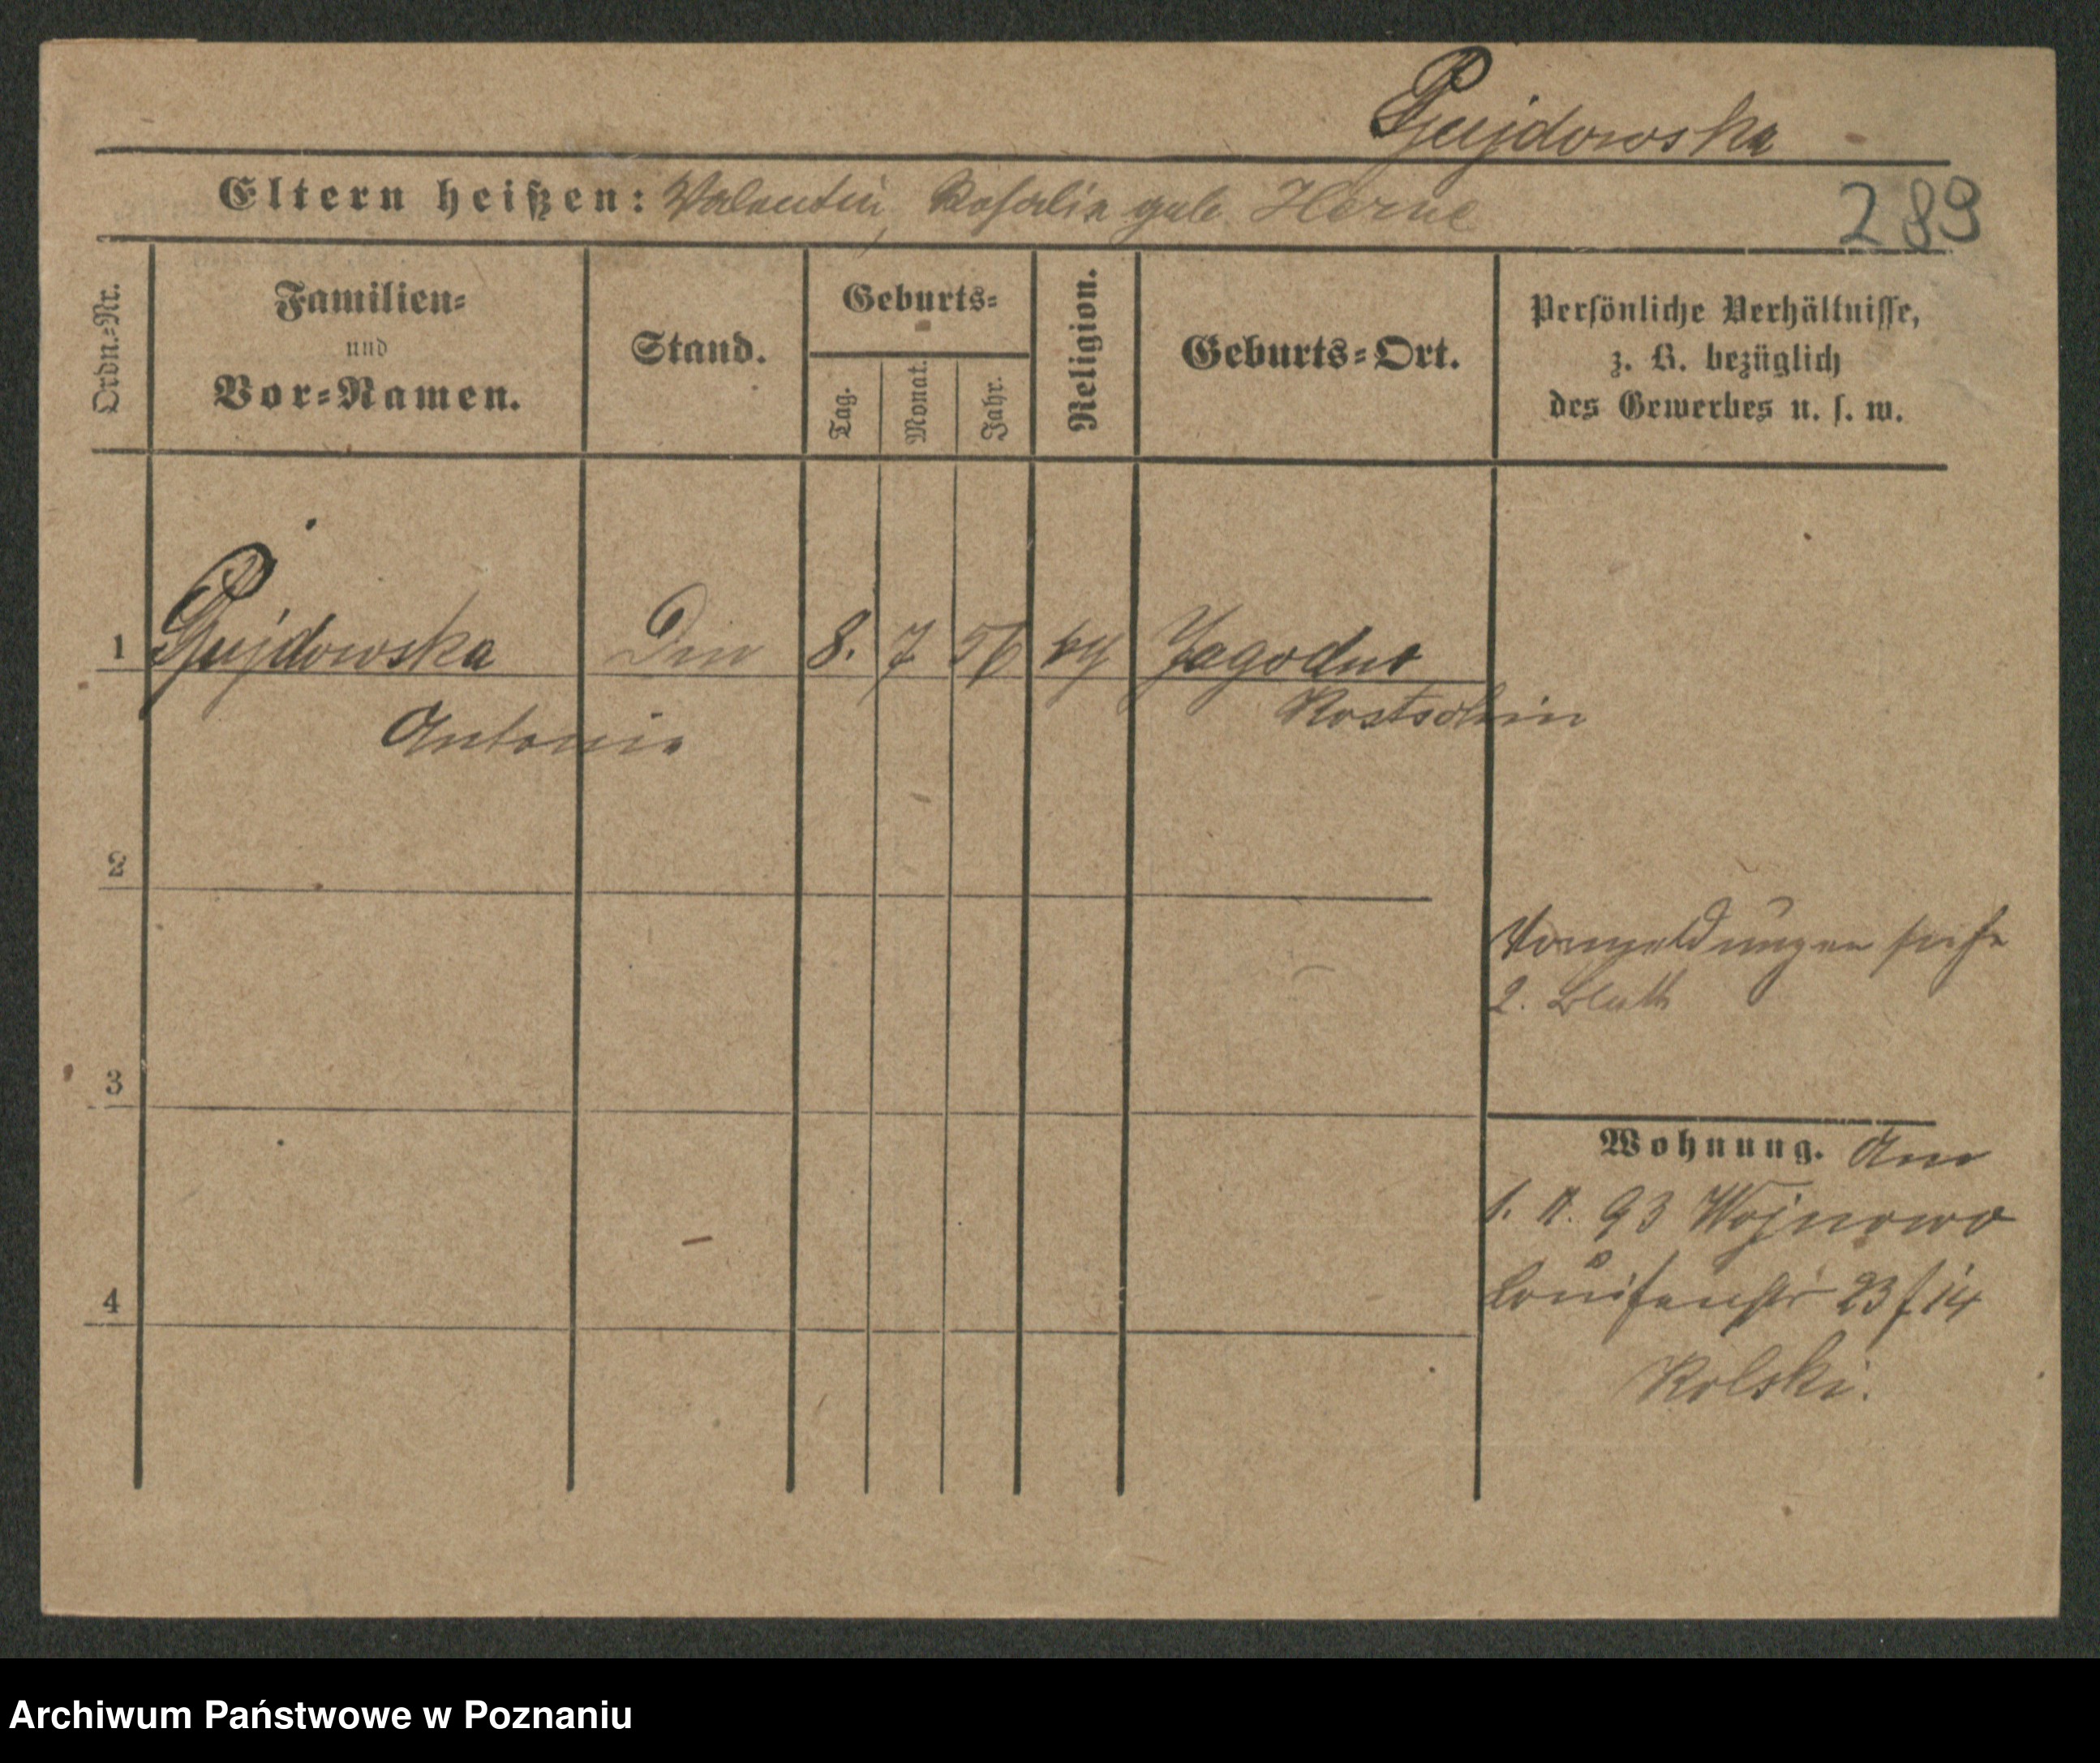 Pujdowska
Eltern heißen: Valentin, Rosalie geb. Horne
289
Ordn.=Nr.
Familien=
und
Vor=Namen.
Stand.
Geburts=
Tag.
Monat.
Jahr.
Religion.
Geburts=Ort.
Persönliche Verhältnisse,
z. B. bezüglich
des Gewerbes u. s. w.
1 Pujdowska 8. 7 56 Jagodno
Kostschin
Antonie
2
Vormeldungen siehe
2. Blatt
3
Wohnung. Am
93 Wojnowo
Louisenstr 23
4
Rolski.
Archiwum Państwowe w Poznaniu